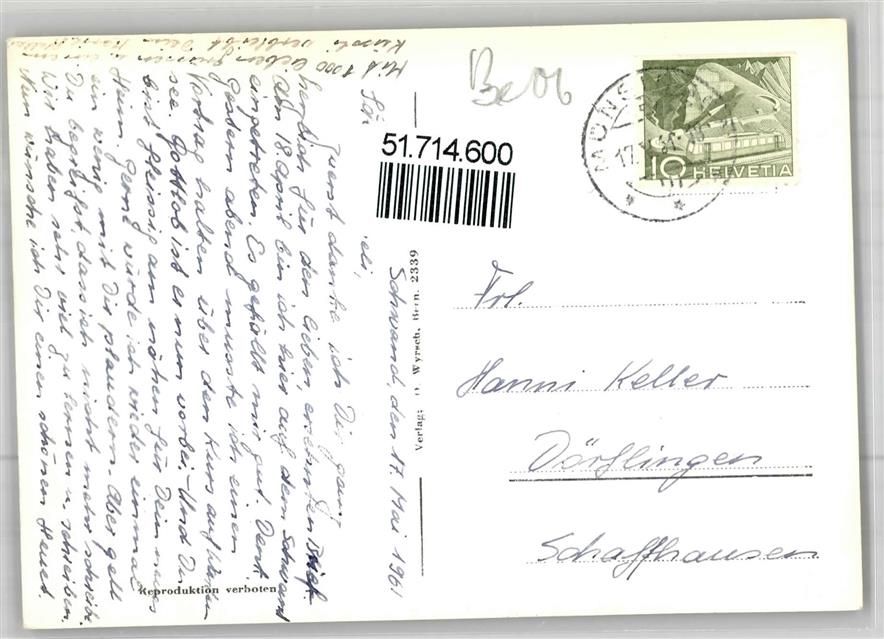 Schwand, den 17. Mai 1961
eli,
zuerst danke ich Dir ganz
herzlich für den lieben, ersehnten Brief.
Am 18. April bin ich hier auf dem Schwand
eingetreten. Es gefällt mir gut. Denk
gestern abend musste ich einen
Vortrag halten über den Kurs auf
see. Gottlob ist er nun vorbei. – Und Du
bist fleissig am nähen für Dein neues
Heim. Gerne würde ich wieder einmal
ein wenig mit Dir plaudern. Aber gell
Du begreifst, dass ich nicht mehr schreibe.
Wir haben sehr viel zu lernen u. schreiben.
Nun wünsche ich Dir einen schönen Heuet.
Mit 1000 lieben Grüssen u. einem
Küssli verbleibt Dein
Reproduktion verboten
Verlag: O. Wyrsch, Bern. 2339
51.714.600
Beob
10 HELVETIA
Frl.
Hanni Keller
Dörflingen
Schaffhausen